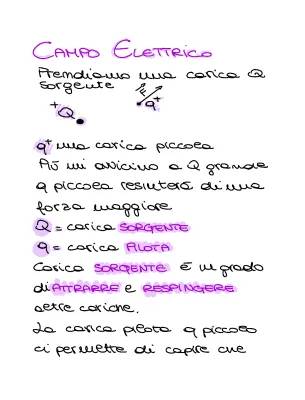 CAMPO ELETTRICO
Prendiamo una carica Q
sorgente
+Q
F
q+
q+ una carica piccola
più mi avvicino a Q grande
q piccola risentirà di una
forza maggiore
Q = carica SORGENTE
q = carica PILOTA
Carica SORGENTE è in grado
di ATTRARRE e RESPINGERE
altre cariche.
La carica pilota q piccolo
ci permette di capire che